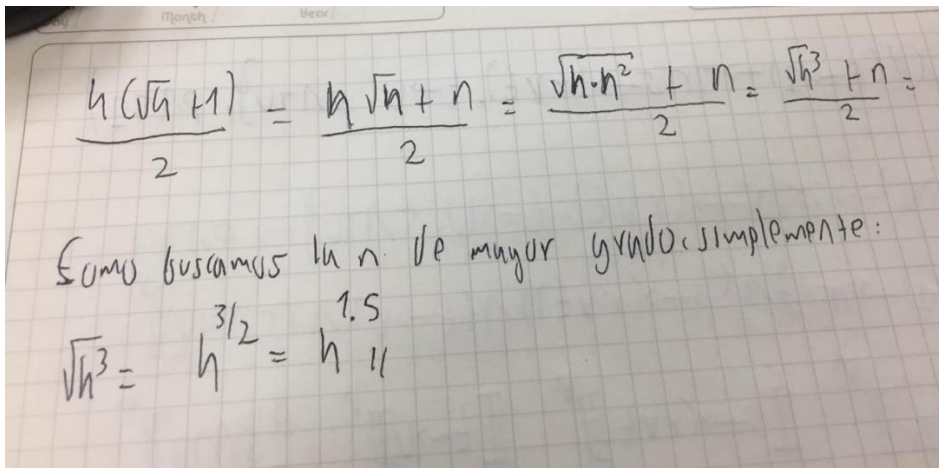 Month Year
n(√n +1)/2 = n√n + n/2 = √n·n² + n/2 = √n³ + n/2 =
Como buscamos la n de mayor grado. simplemente:
√n³ = n^3/2 = n^1.5 //